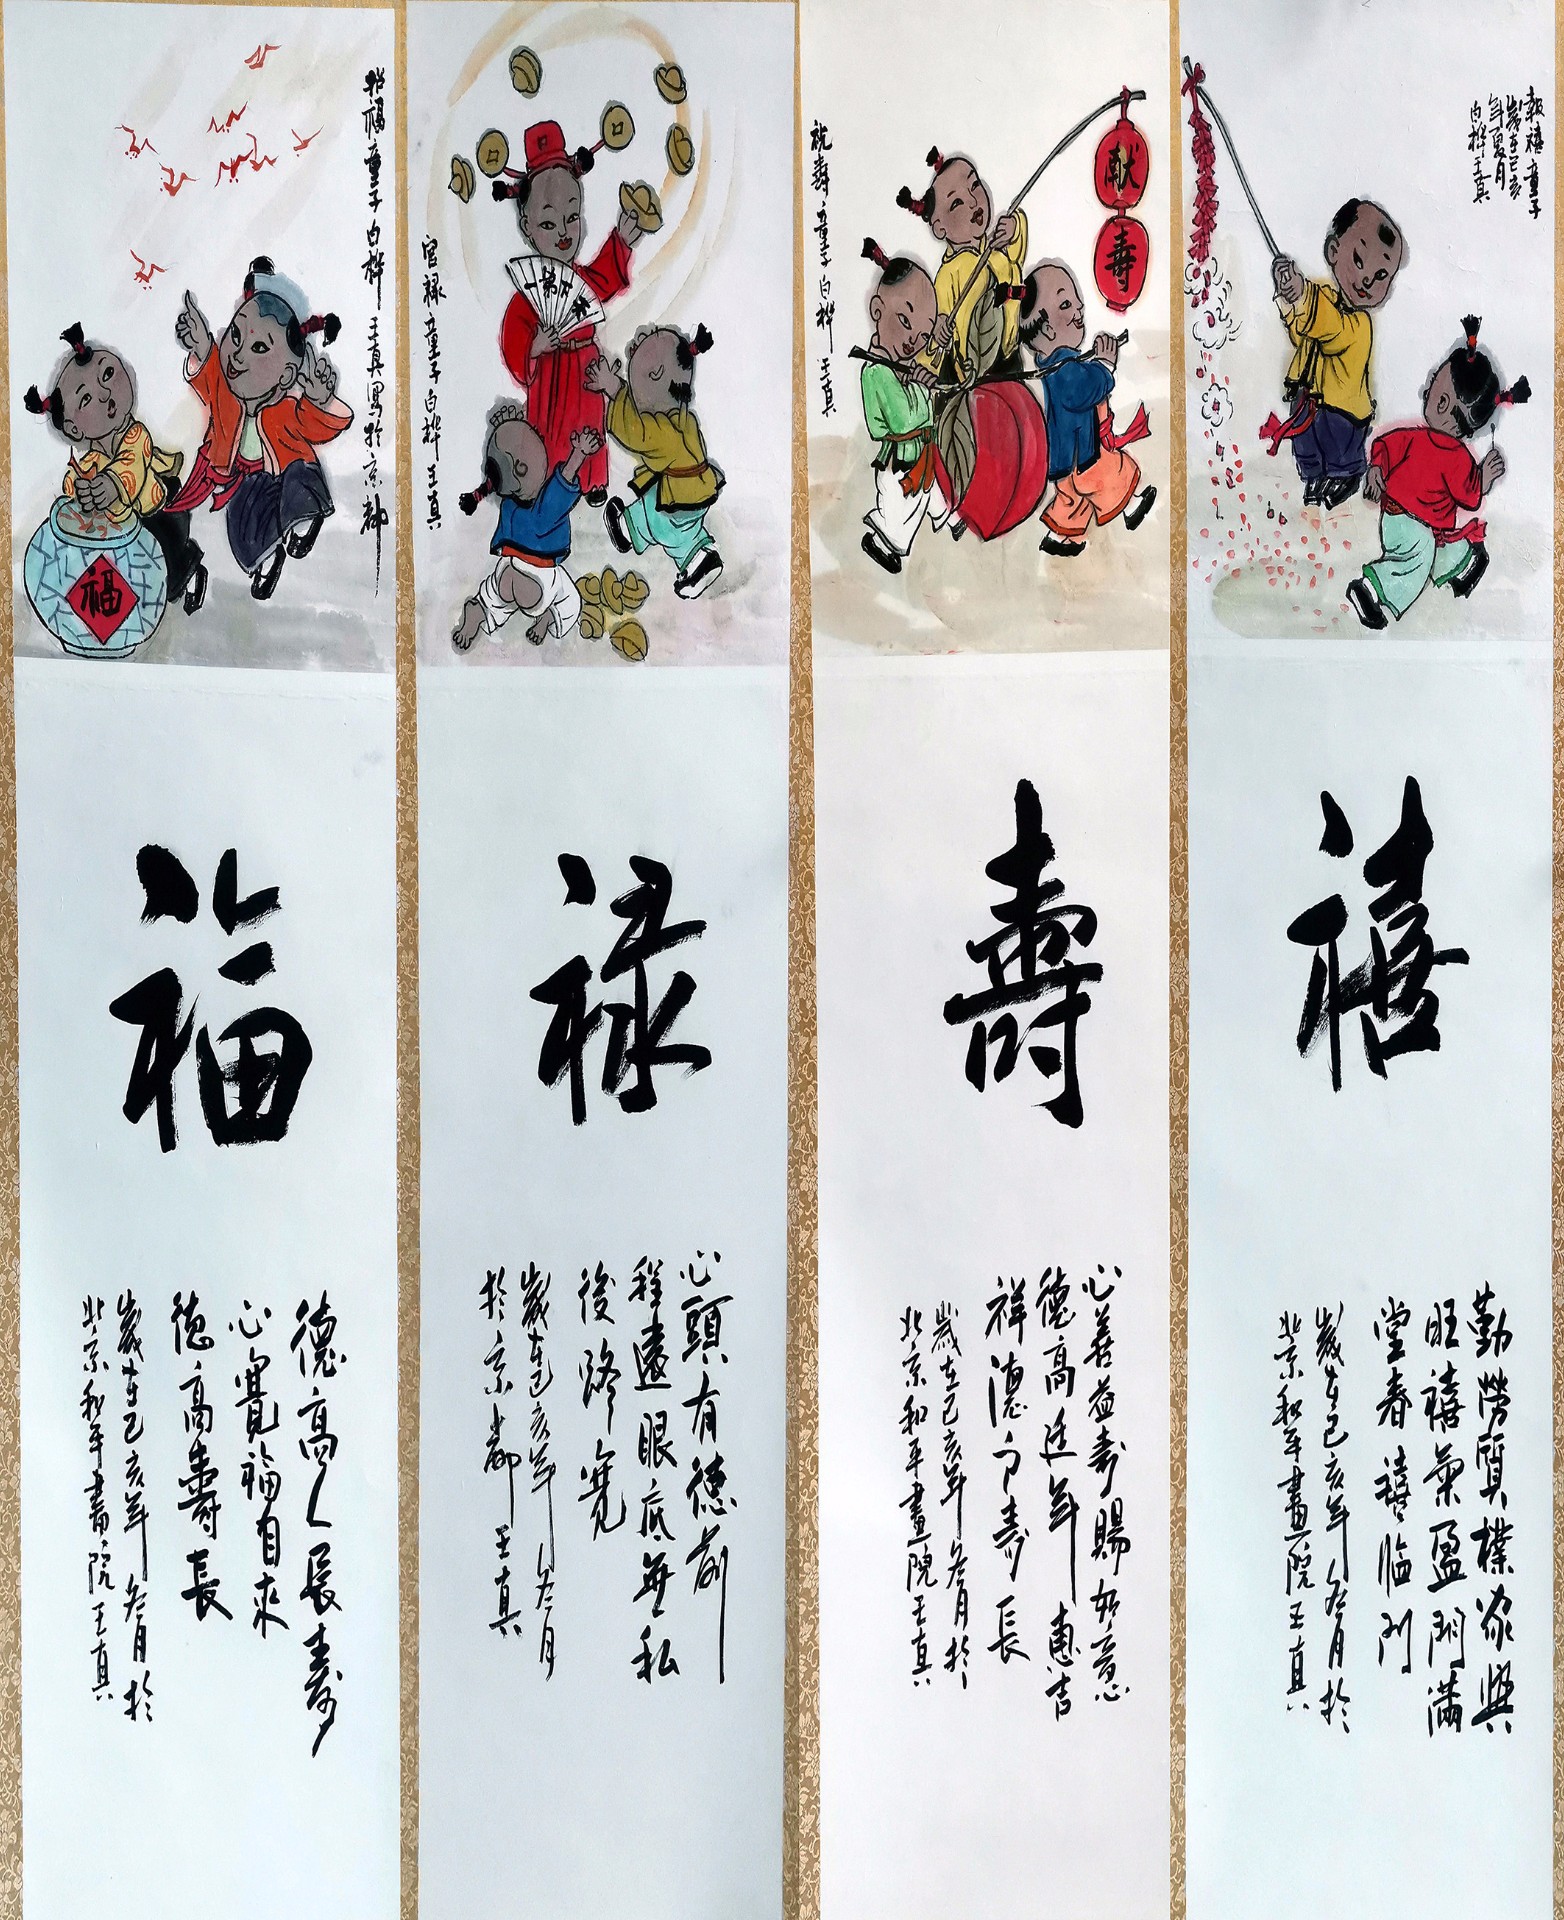 招福童子白桦王真写於京都
福
福
德高人長壽
心寬福自来
德高壽長
歲在己亥年冬月於
北京和平書院王真
官禄童子白桦王真
禄
心頭有德前
程遠眼底無私
後路寬
歲在己亥年冬月
於京都王真
祝壽童子白桦王真
献
壽
壽
心善益壽賜如意
德高延年惠吉
祥德下壽長
歲在己亥年冬月於
北京和平畫院王真
報禧童子
歲在己亥
年夏月
白桦王真
禧
勤勞質樸家興
旺禧氣盈門满
堂春禧临门
歲在己亥年冬月於
北京和平畫院王真